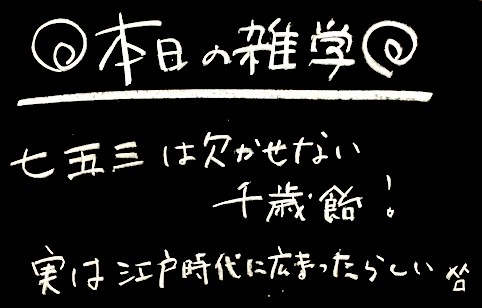 本日の雑学
七五三は欠かせない
千歳飴!
実は江戸時代に広まったらしい